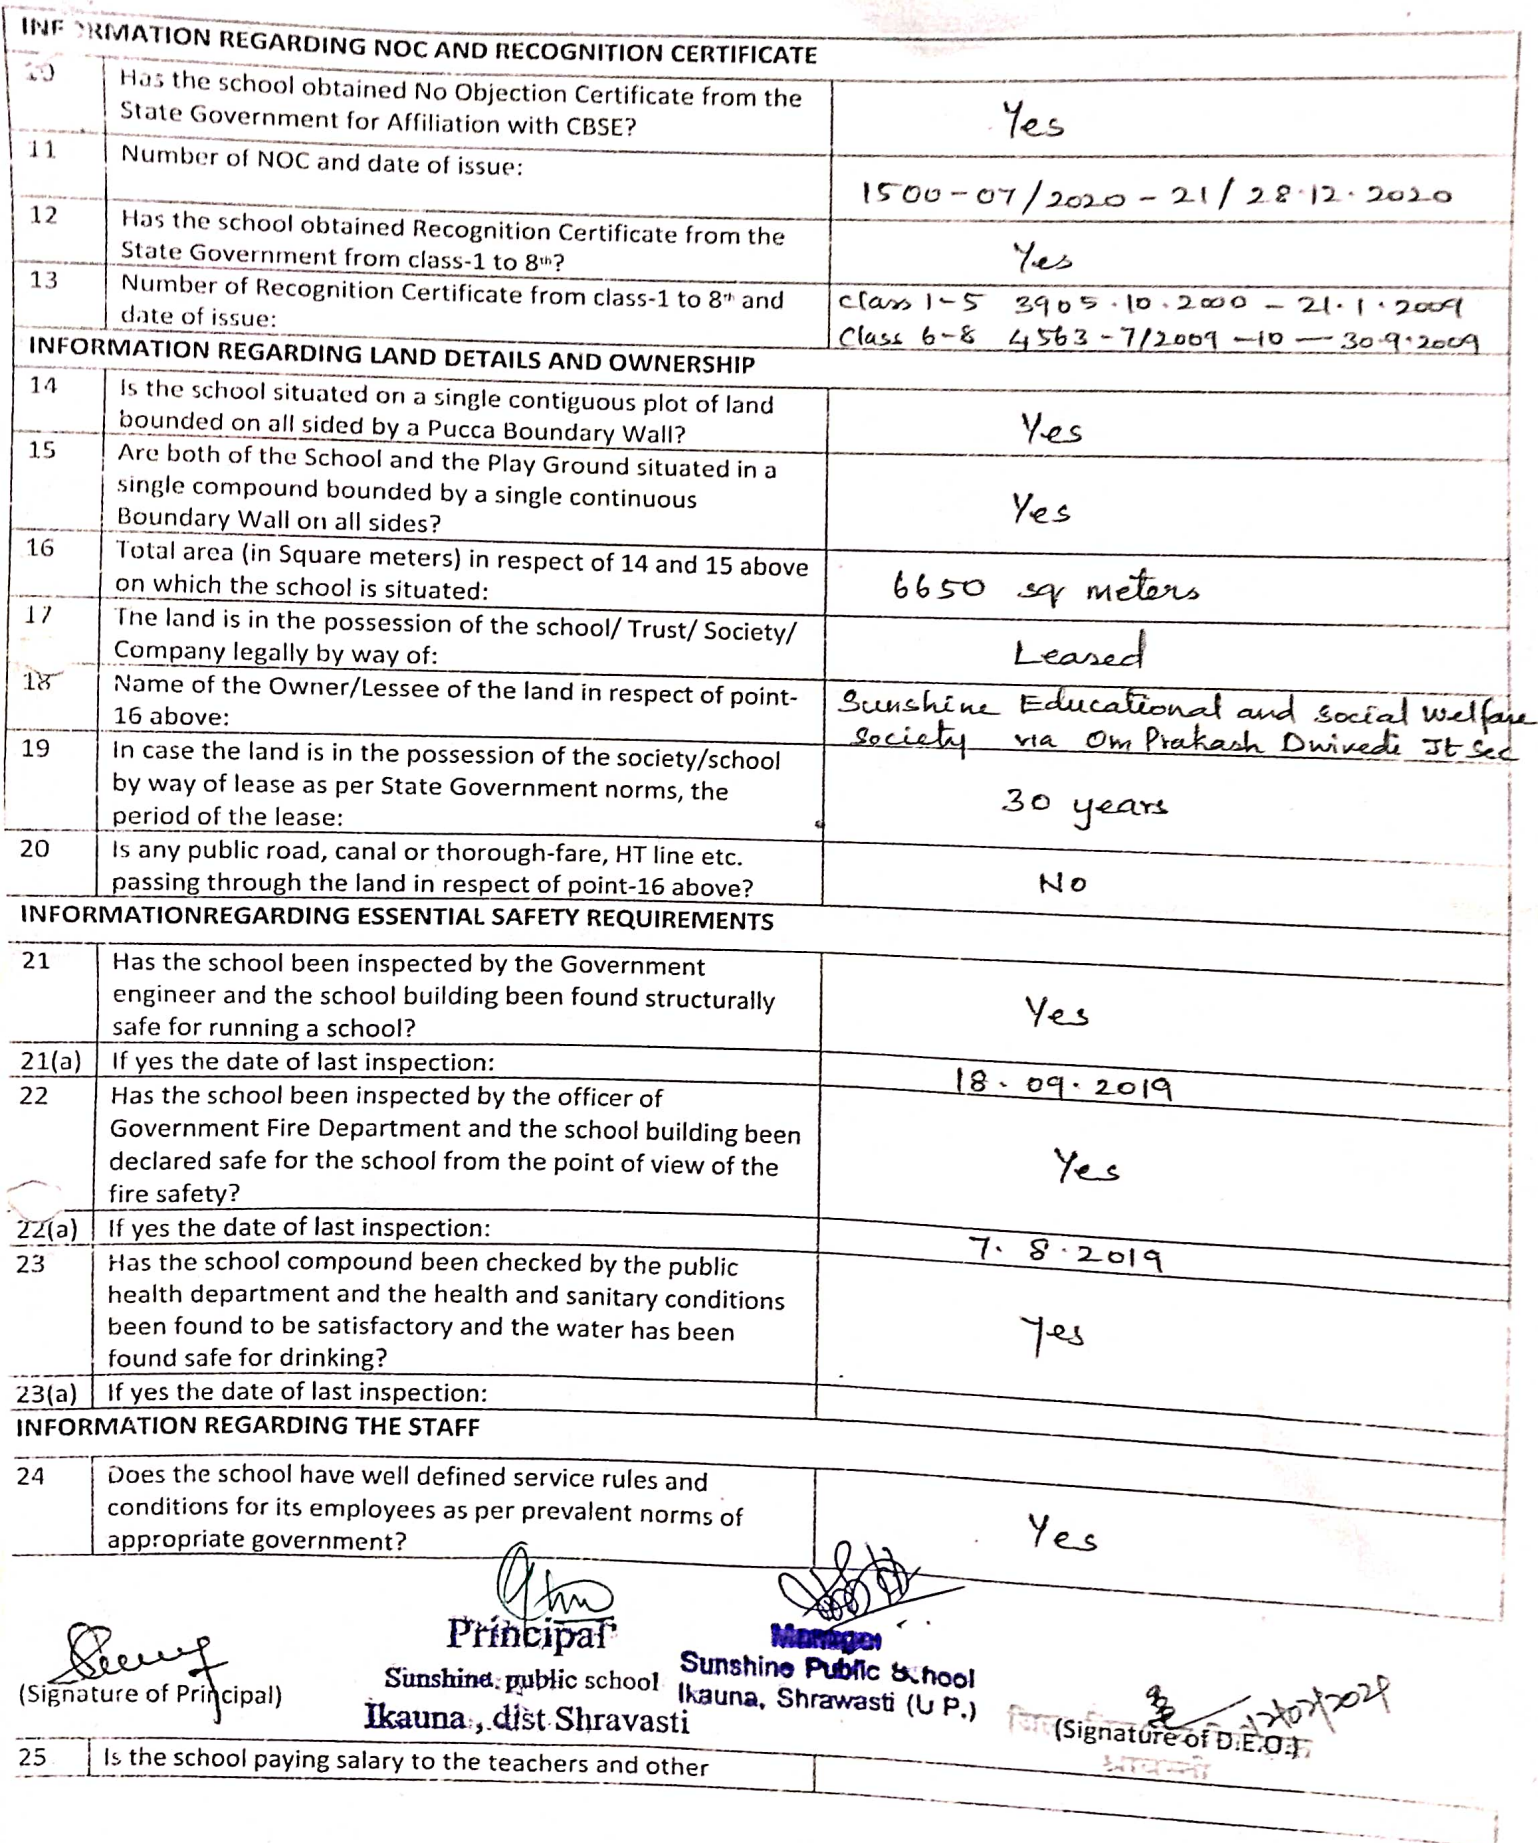 INFORMATION REGARDING NOC AND RECOGNITION CERTIFICATE
10 Has the school obtained No Objection Certificate from the
State Government for Affiliation with CBSE?
Yes
11 Number of NOC and date of issue:
1500-07/2020-21/28.12.2020
12 Has the school obtained Recognition Certificate from the
State Government from class-1 to 8th?
Yes
13 Number of Recognition Certificate from class-1 to 8th and
date of issue:
Class 1-5 3905.10.2000 - 21.1.2009
Class 6-8 4563-7/2009-10 - 30.9.2009
INFORMATION REGARDING LAND DETAILS AND OWNERSHIP
14 Is the school situated on a single contiguous plot of land
bounded on all sided by a Pucca Boundary Wall?
Yes
15 Are both of the School and the Play Ground situated in a
single compound bounded by a single continuous
Boundary Wall on all sides?
Yes
16 Total area (in Square meters) in respect of 14 and 15 above
on which the school is situated:
6650 sq meters
17 The land is in the possession of the school/ Trust/ Society/
Company legally by way of:
Leased
18 Name of the Owner/Lessee of the land in respect of point-
16 above:
Sunshine Educational and Social Welfare
Society via Om Prakash Dwivedi Jt Sec
19 In case the land is in the possession of the society/school
by way of lease as per State Government norms, the
period of the lease:
30 years
20 Is any public road, canal or thorough-fare, HT line etc.
passing through the land in respect of point-16 above?
No
INFORMATIONREGARDING ESSENTIAL SAFETY REQUIREMENTS
21 Has the school been inspected by the Government
engineer and the school building been found structurally
safe for running a school?
Yes
21(a) If yes the date of last inspection:
18.09.2019
22 Has the school been inspected by the officer of
Government Fire Department and the school building been
declared safe for the school from the point of view of the
fire safety?
Yes
22(a) If yes the date of last inspection:
7.8.2019
23 Has the school compound been checked by the public
health department and the health and sanitary conditions
been found to be satisfactory and the water has been
found safe for drinking?
Yes
23(a) If yes the date of last inspection:
INFORMATION REGARDING THE STAFF
24 Does the school have well defined service rules and
conditions for its employees as per prevalent norms of
appropriate government?
Yes
(Signature of Principal)
Principal
Sunshine public school
Ikauna, dist Shravasti
Manager
Sunshine Public School
Ikauna, Shrawasti (U P.)
12/02/2021
(Signature of D.E.O.)
श्रावस्ती
25 Is the school paying salary to the teachers and other